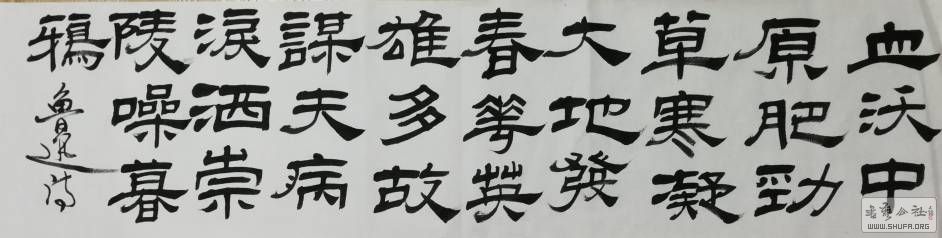 血沃中
原肥勁
草寒凝
大地發
春華英
雄多故
謀夫病
淚洒崇
陵噪暮
鴉
魯迅詩
WWW.SHUFA.ORG